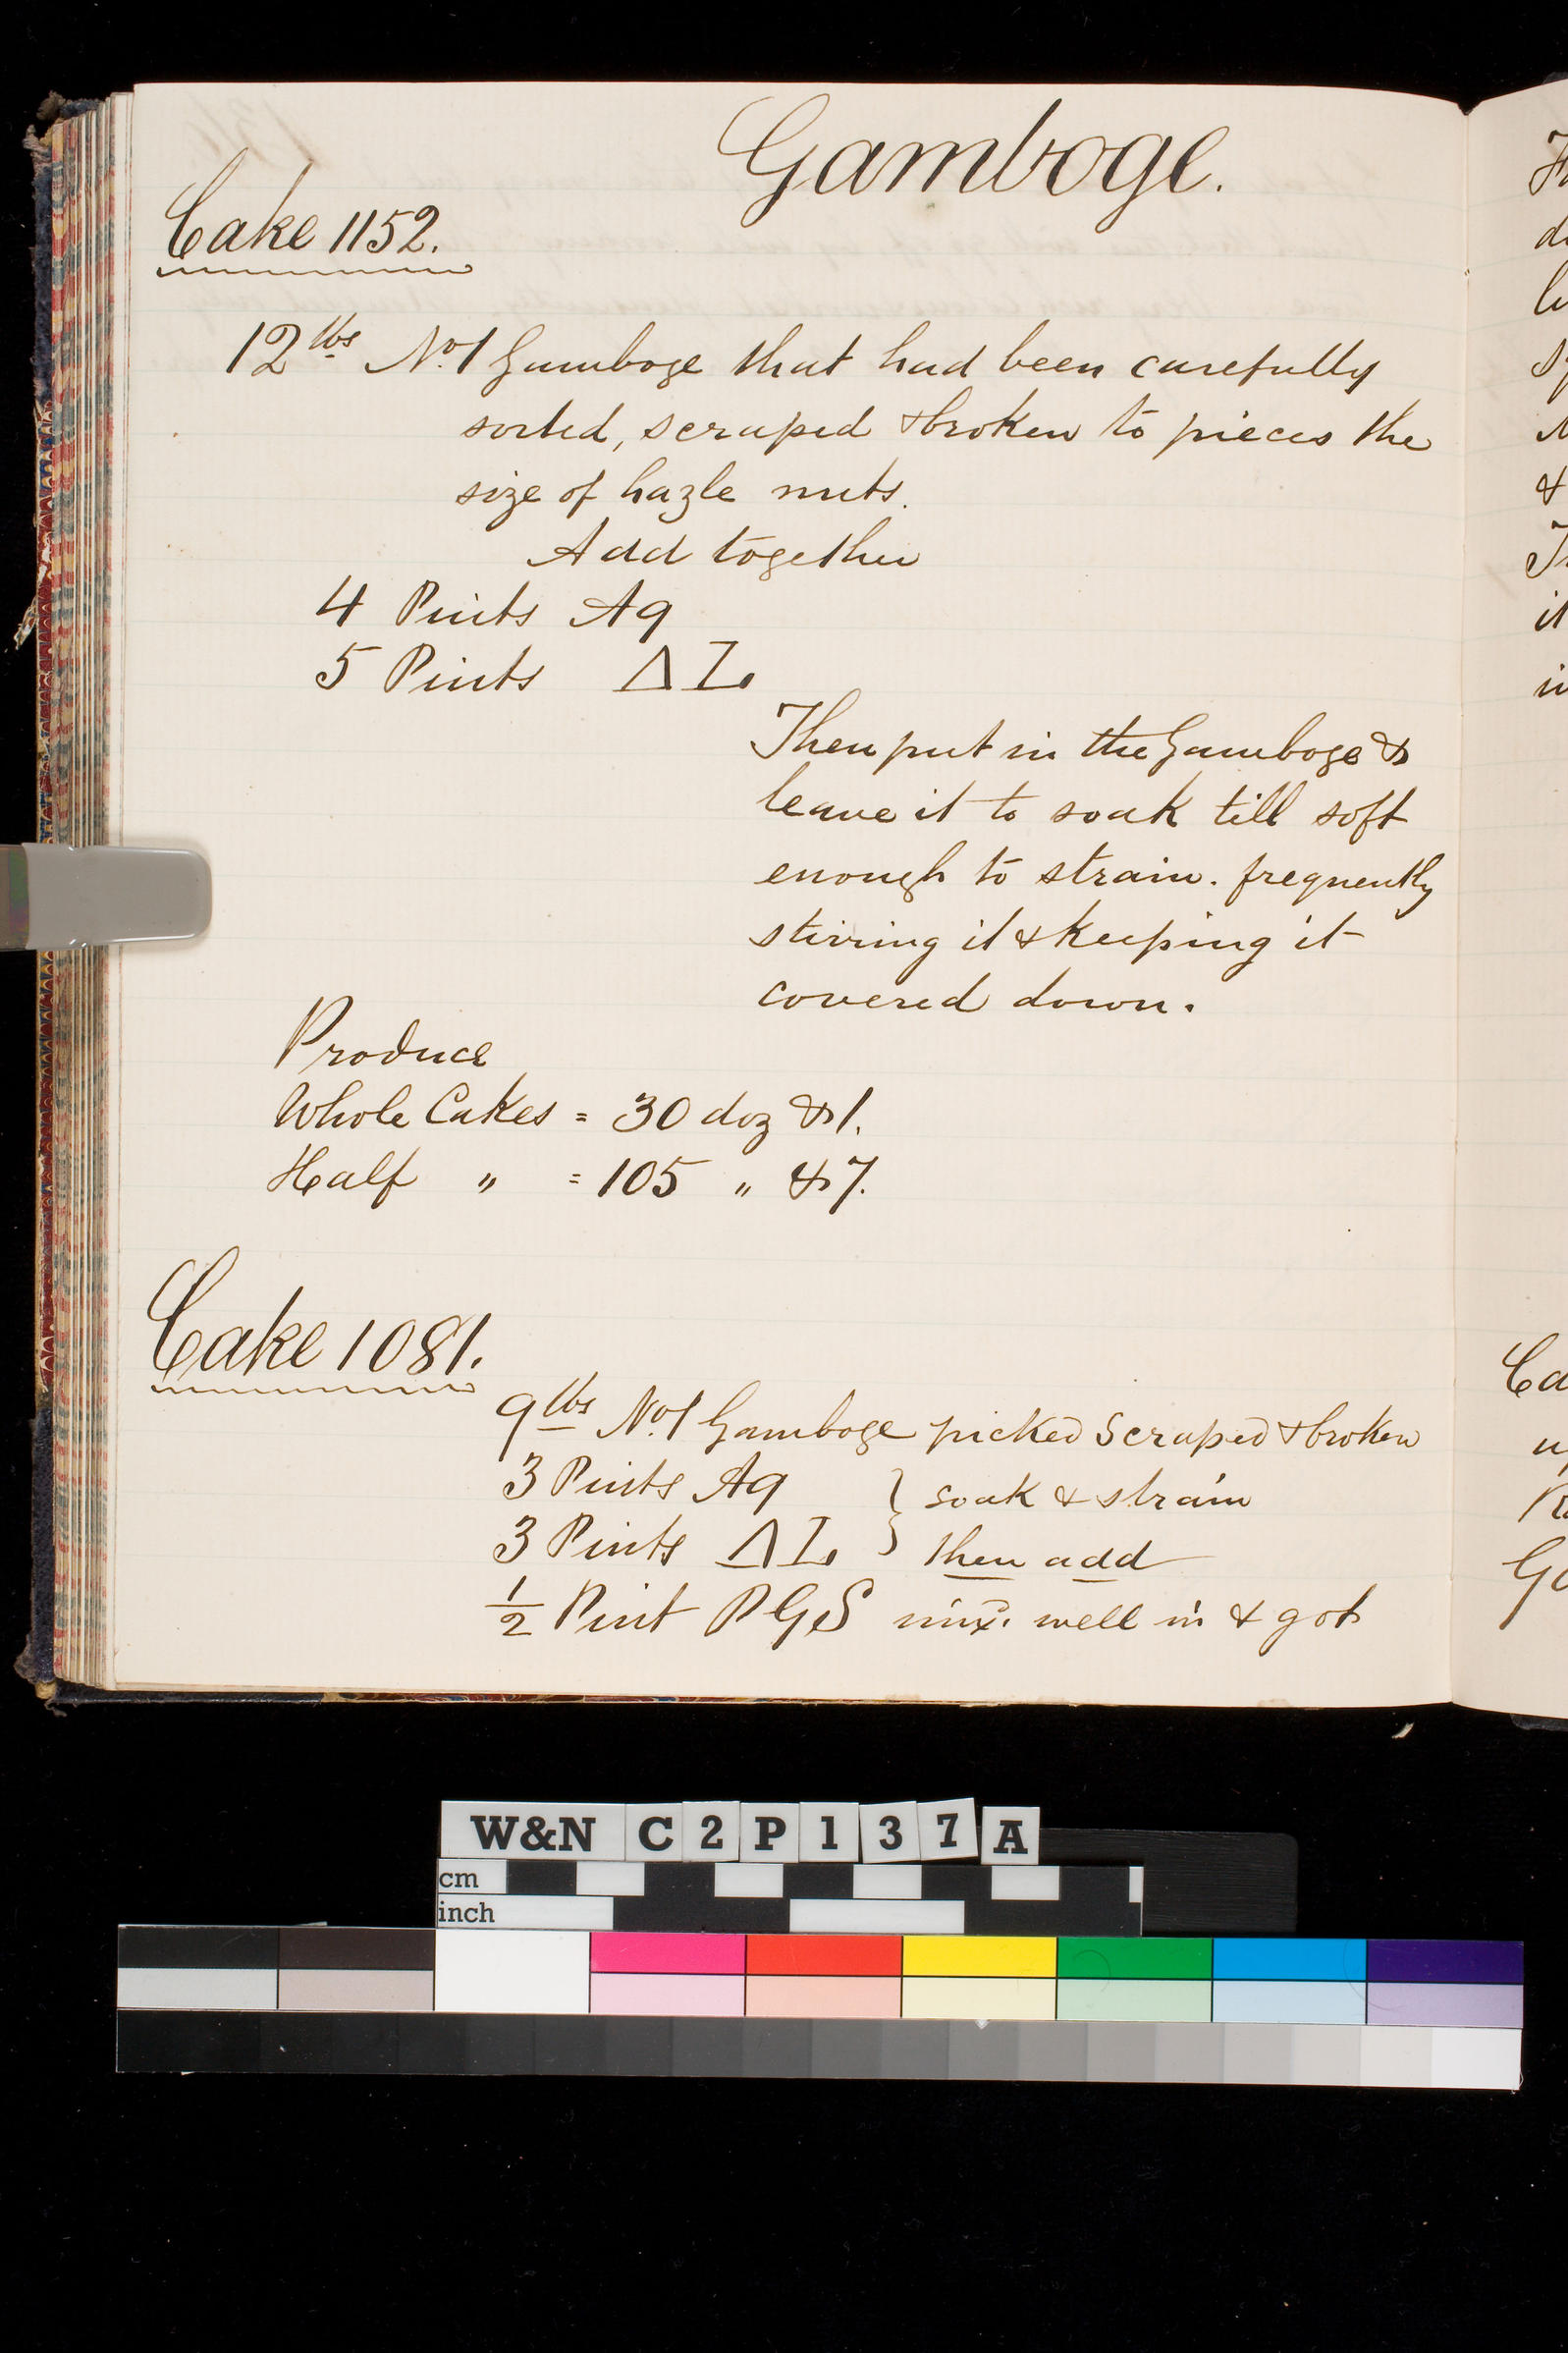 Gamboge.
Cake 1152.
12 lbs No. 1 Gamboge that had been carefully
sorted, scraped & broken to pieces the
size of hazle nuts.
Add together
4 Pints Aq
5 Pints Δ L
Then put in the Gamboge &
leave it to soak till soft
enough to strain. frequently
stirring it & keeping it
covered down.
Produce
Whole Cakes = 30 doz & 1.
Half " = 105 " & 7.
Cake 1081.
9 lbs No. 1 Gamboge picked Scraped & broken
3 Pints Aq } soak & strain
3 Pints Δ L } then add
1/2 Pint PGS mix well in & got
W&N C2P137A
cm
inch